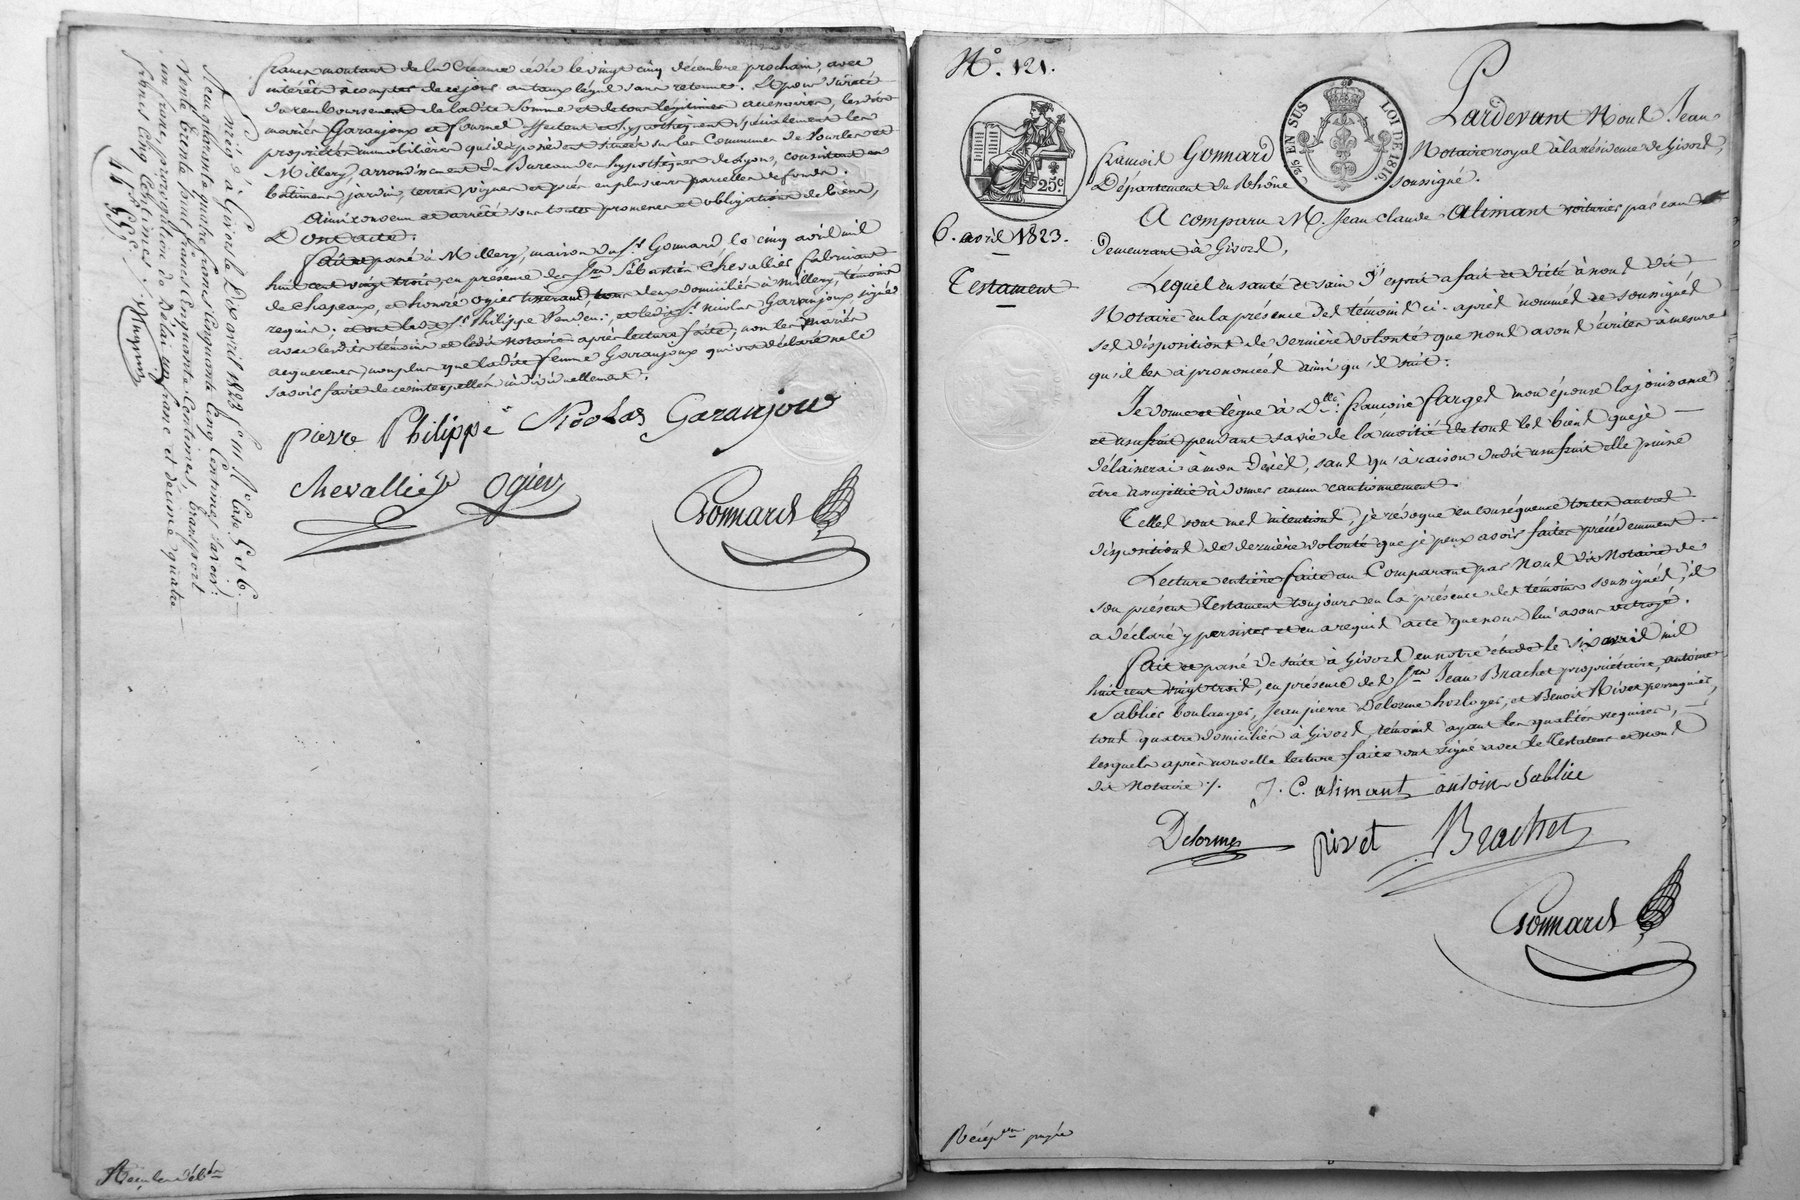 francs montant de la Créance cédée le vingt cinq décembre prochain, avec
intérêts à compter de ce jour au taux légal sans retenue. Et pour sûreté
du remboursement de ladite Somme et de tous légitimes accessoires, lesdits
mariés Garanjoux et fournel affectent et hypothèquent spécialement les
propriétés immobilières qu'ils possèdent situées sur les Communes de Vourles et
Millery, arrondissement du Bureau des hypothèques de Lyon, consistant en
bâtiments, jardin, terres, vignes et prés en plusieurs parcelles de fonds.
Ainsi convenu et arrêté sous toutes promesses et obligations de biens,
Dont acte.
fait et passé à Millery, maison du Sr. Gonnard, le cinq avril mil
huit cent vingt trois, en présence des Srs. Sébastien Chevallier fabricant
de chapeaux, et honoré ogier tisserand, tous deux domiciliés à Millery, témoins
requis; et ont led. Sr. Philippe vendeur, et ledit Sr. nicolas Garanjoux, signé
avec lesdits témoins et ledit notaire après lecture faite; non les mariés
acquereurs, non plus que ladite femme Garanjoux qui ont déclaré ne le
savoir faire de ce interpellés individuellement.
pierre Philippe Nicolas Garanjou
Chevallier Ogier
Gonnard
Enrég. à Givors le Dix avril 1823 f. 111 Ro. Case 5 et 6.
Reçu quarante quatre francs cinquante Cinq Centimes savoir:
Vente trente huit francs cinquante Centimes, transport
un franc, prorogation de Délai un franc et décime quatre
francs cinq centimes.
44 f 55 c
No. 121.
25c
25 EN SUS
LOI DE 1816
6. avril 1823.
Testament
Pardevant Nous Jean
François Gonnard Notaire royal à la résidence de Givors,
Département du Rhône soussigné.
A comparu M. Jean Claude Alimant voiturier par eau
demeurant à Givors,
Lequel en santé et sain d'esprit a fait et dicté à nous dit
Notaire en la présence des témoins ci-après nommés et soussignés
ses dispositions de dernière volonté que nous avons écrites à mesure
qu'il les à prononcées ainsi qu'il suit:
Je donne et lègue à Dlle. françoise farges mon épouse la jouissance
et usufruit pendant sa vie de la moitié de tous les biens que je
délaisserai à mon Décès, sans qu'à raison dudit usufruit elle puisse
être assujettie à donner aucun cautionnement.
Telles sont mes intentions, je révoque en conséquence toutes autres
dispositions de dernière volonté que je peux avoir faites précédemment.
Lecture entière faite au Comparant par Nous dit Notaire de
son présent Testament toujours en la présence des témoins soussignés, il
a déclaré y persister et en a requis acte que nous lui avons octroyé.
fait et passé de suite à Givors en notre étude le six avril mil
huit cent vingt trois, en présence des Srs. Jean Brachet propriétaire, antoine
Sablier boulanger, Jean pierre Delorme horloger, et Benoit Rivet perruquier,
tous quatre domiciliés à Givors, témoins ayant les qualités requises,
lesquels après nouvelle lecture faite ont signé avec le Testateur et nous
dit Notaire ./.
J. C. alimant antoin Sablier
Delorme rivet Brachet
Gonnard